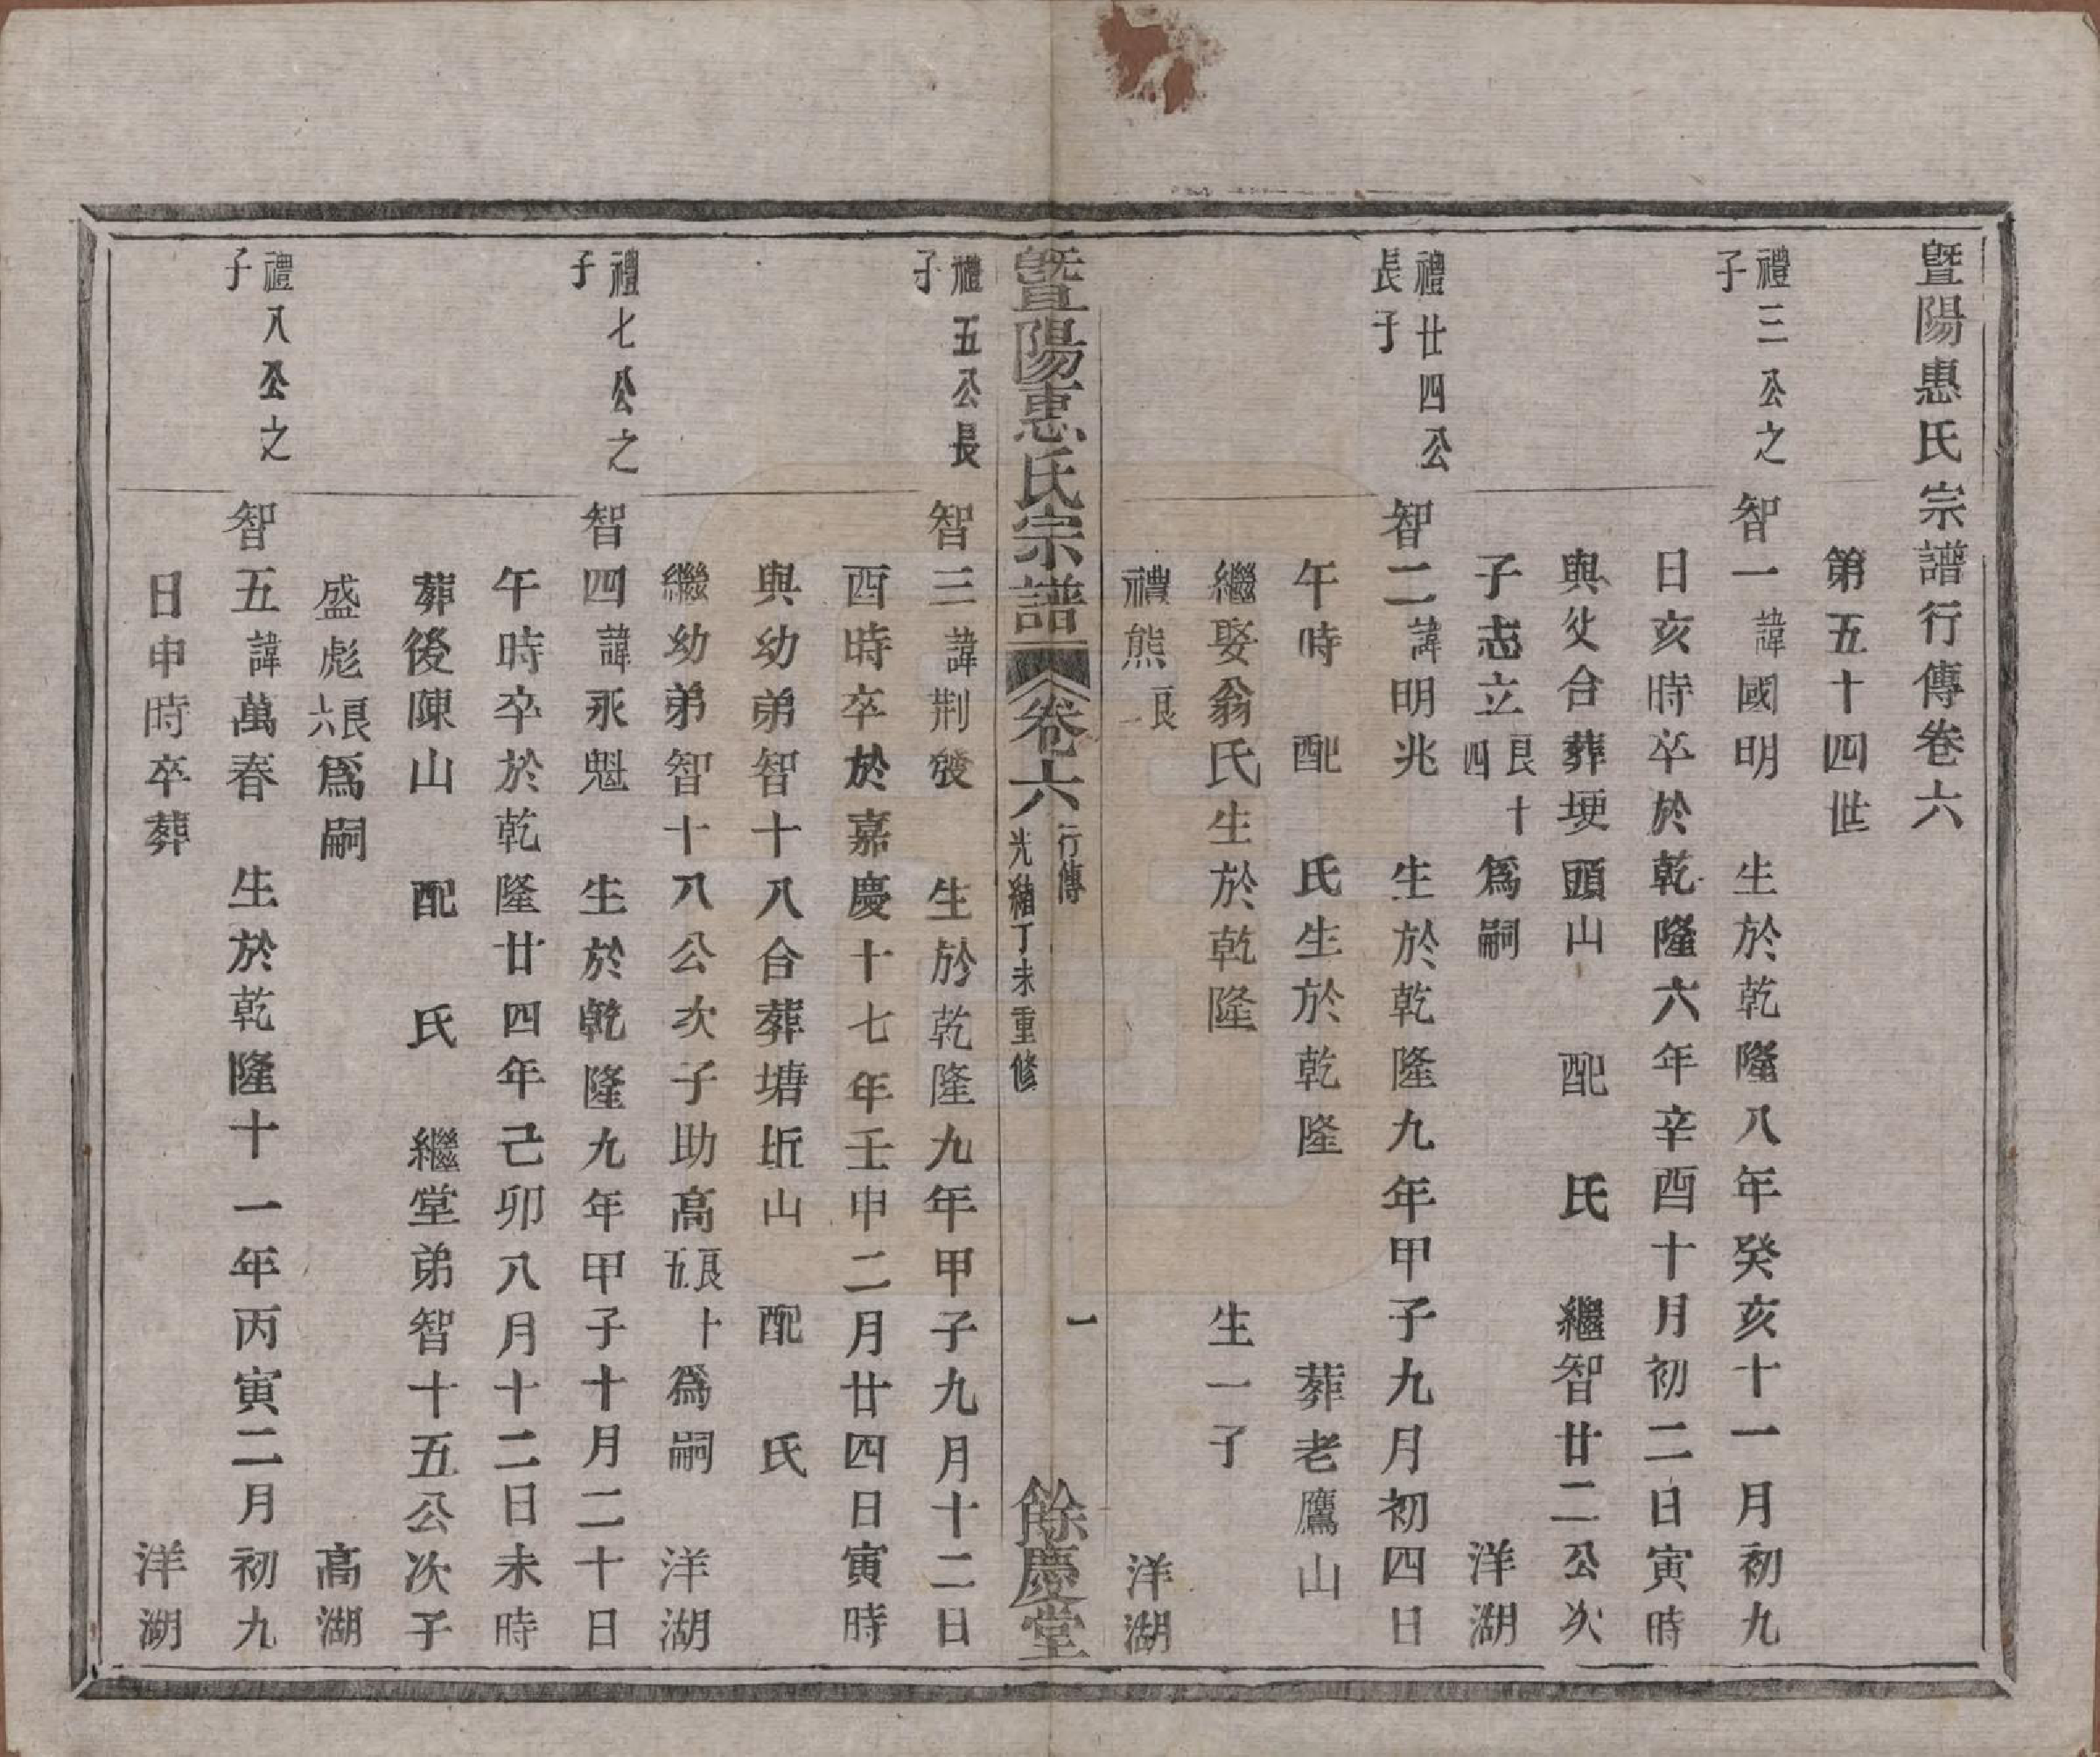 暨陽惠氏宗譜行傳卷六
第五十四世
禮三公之
子
智一諱國明　生於乾隆八年癸亥十一月初九
日亥時卒於乾隆六年辛酉十月初二日寅時
與父合葬埂頭山　配　氏　繼智廿二公次
子志立良十四爲嗣　洋湖
禮廿四公
長子
智二諱明兆　生於乾隆九年甲子九月初四日
午時　配　氏生於乾隆　葬老鷹山
繼娶翁氏生於乾隆　生一子
禮熊良一　洋湖
暨陽惠氏宗譜　卷六　行傳　光緒丁未重修　一　餘慶堂
禮五公長
子
智三諱荆發　生於乾隆九年甲子九月十二日
酉時卒於嘉慶十七年壬申二月廿四日寅時
與幼弟智十八合葬塘坵山　配　氏
繼幼弟智十八公次子助高良十五爲嗣　洋湖
禮七公之
子
智四諱永魁　生於乾隆九年甲子十月二十日
午時卒於乾隆廿四年己卯八月十二日未時
葬後陳山　配　氏　繼堂弟智十五公次子
盛彪良六爲嗣　高湖
禮八公之
子
智五諱萬春　生於乾隆十一年丙寅二月初九
日申時卒葬　洋湖